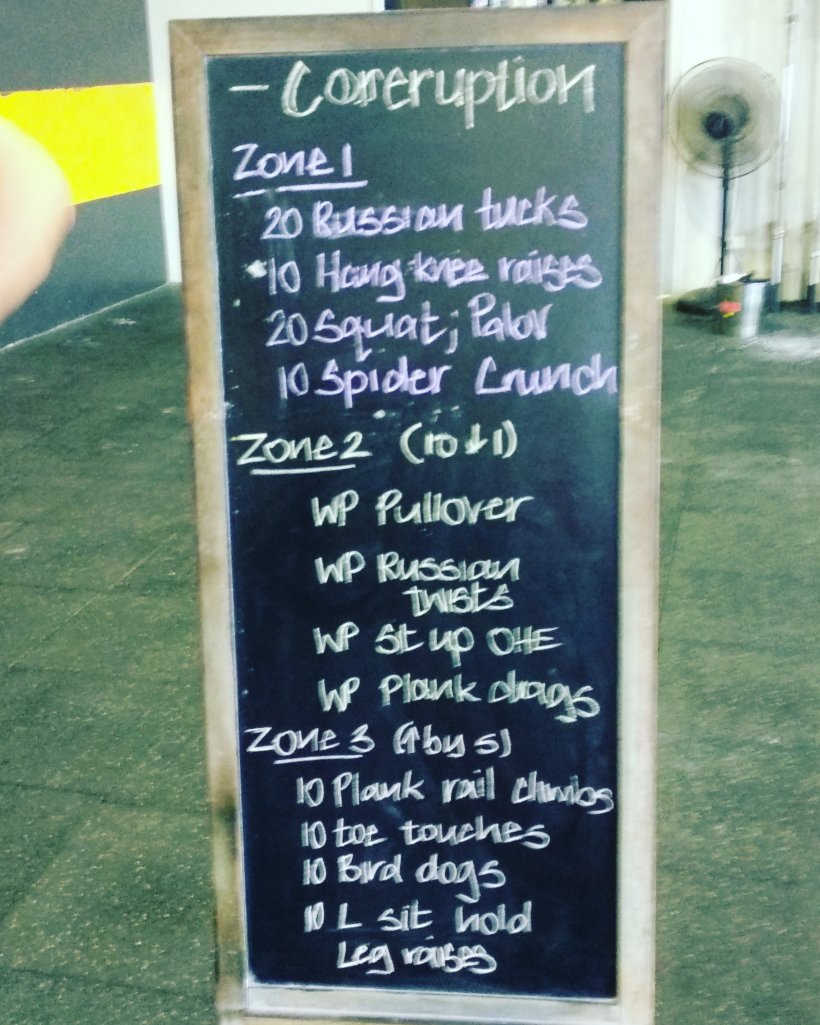 - Coreruption
Zone 1
20 Russian tucks
10 Hang knee raises
20 Squat; Palov
10 Spider Crunch
Zone 2 (10↓1)
WP Pullover
WP Russian
twists
WP Sit up OHE
WP Plank drags
Zone 3 (↑by 5)
10 Plank rail climbs
10 toe touches
10 Bird dogs
10 L sit hold
Leg raises